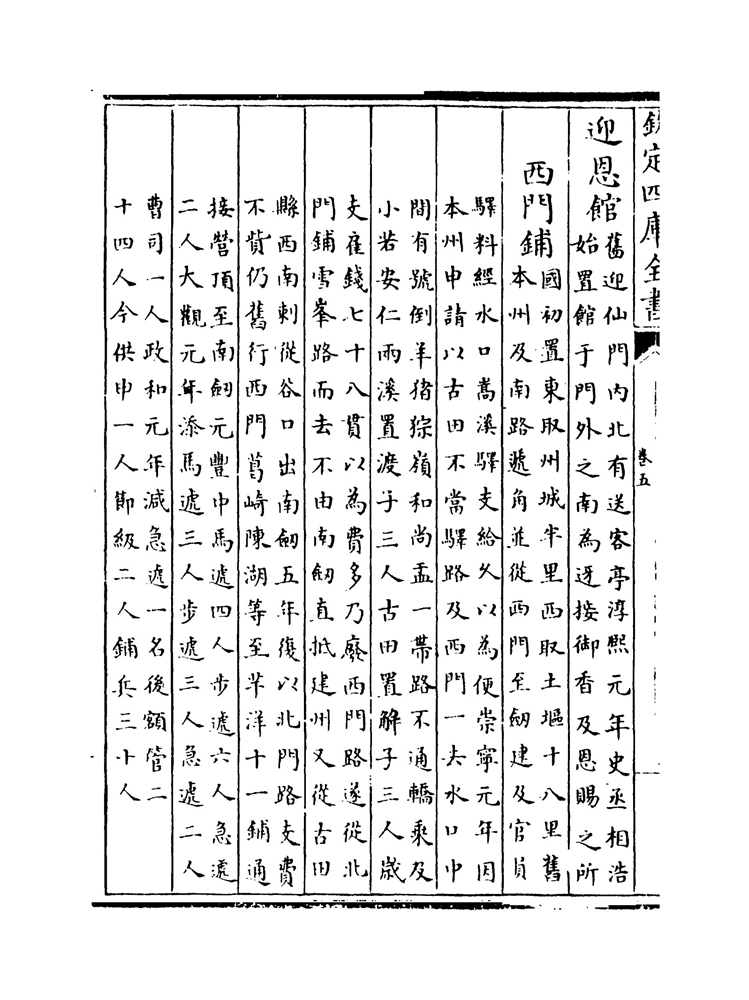 欽定四庫全書
卷五
迎恩館
舊迎仙門內北有送客亭淳熙元年史丞相浩
始置館于門外之南為迓接御香及恩賜之所
西門鋪
國初置東取州城半里西取土塸十八里舊
本州及南路遞角並從西門至劒建及官員
驛料經水口嵩溪驛支給久以為便崇寧元年因
本州申請以古田不當驛路及西門一去水口中
間有號倒羊猪猔嶺和尚盂一帶路不通轎乘及
小若安仁兩溪置渡子三人古田置解子三人歲
支雇錢七十八貫以為費多乃廢西門路遂從北
門鋪雪峯路而去不由南劒直抵建州又從古田
縣西南剌從谷口出南劒五年復以北門路支費
不貲仍舊行西門葛崎陳湖等至芋洋十一鋪通
接營頂至南劒元豐中馬遞四人步遞六人急遞
二人大觀元年添馬遞三人步遞三人急遞二人
曹司一人政和元年減急遞一名後額管二
十四人今供申一人節級二人鋪兵三十人